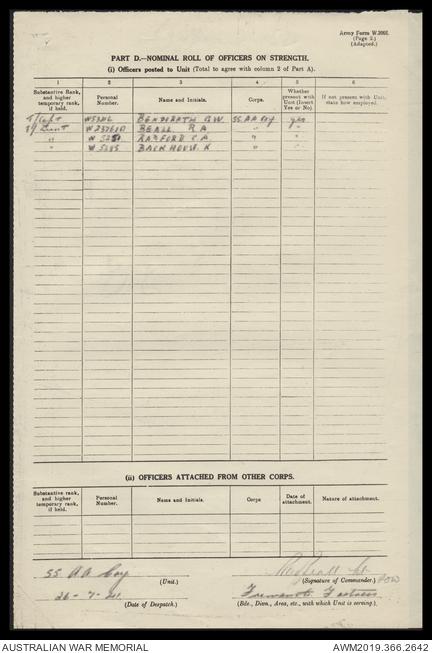 Army Form W.3008.
(Page 2.)
(Adapted.)
PART D.—NOMINAL ROLL OF OFFICERS ON STRENGTH.
(i) Officers posted to Unit (Total to agree with column 2 of Part A).
1 2 3 4 5 6
Substantive Rank, and higher temporary rank, if held. Personal Number. Name and Initials. Corps. Whether present with Unit (Insert Yes or No). If not present with Unit, state how employed.
T/Capt G.W. 55 AA Coy yes
Lieut BEALL R A " "
" RADFORD C A " "
BACKHOUSE K " "
(ii) OFFICERS ATTACHED FROM OTHER CORPS.
Substantive rank, and higher temporary rank, if held. Personal Number. Name and Initials. Corps Date of attachment. Nature of attachment.
55 AA Coy
(Unit.) (Signature of Commander.)
26-7-41 Fremantle Fortress
(Date of Despatch.) (Bde., Divn., Area, etc., with which Unit is serving.)
AUSTRALIAN WAR MEMORIAL AWM2019.366.2642